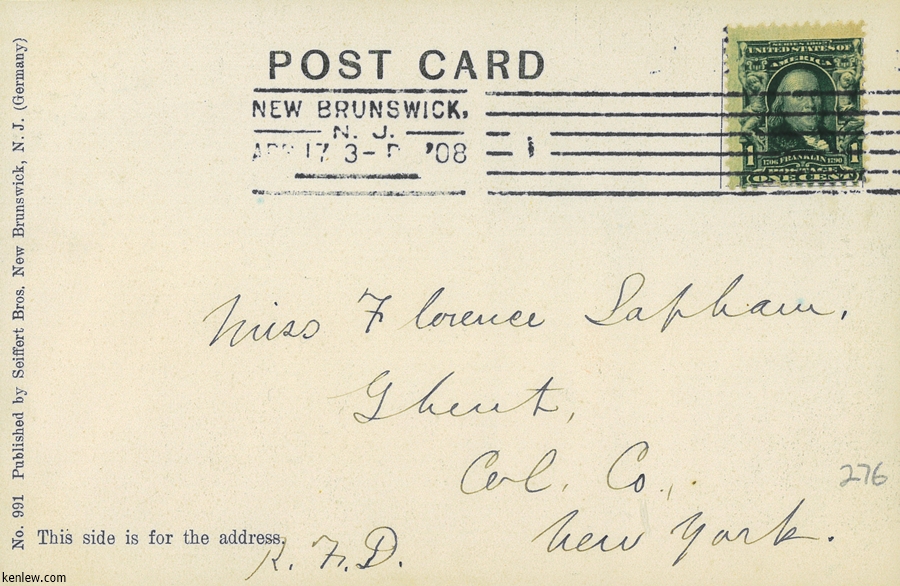 POST CARD
NEW BRUNSWICK,
N. J.
APR 17 3-P '08
1
SERIES 1902
UNITED STATES OF
AMERICA
1 1706 FRANKLIN 1790 1
ONE CENT
Miss Florence Lapham,
Ghent,
Col. Co.,
New York.
R. F. D.
276
This side is for the address.
No. 991 Published by Seiffert Bros, New Brunswick, N. J. (Germany)
kenlew.com